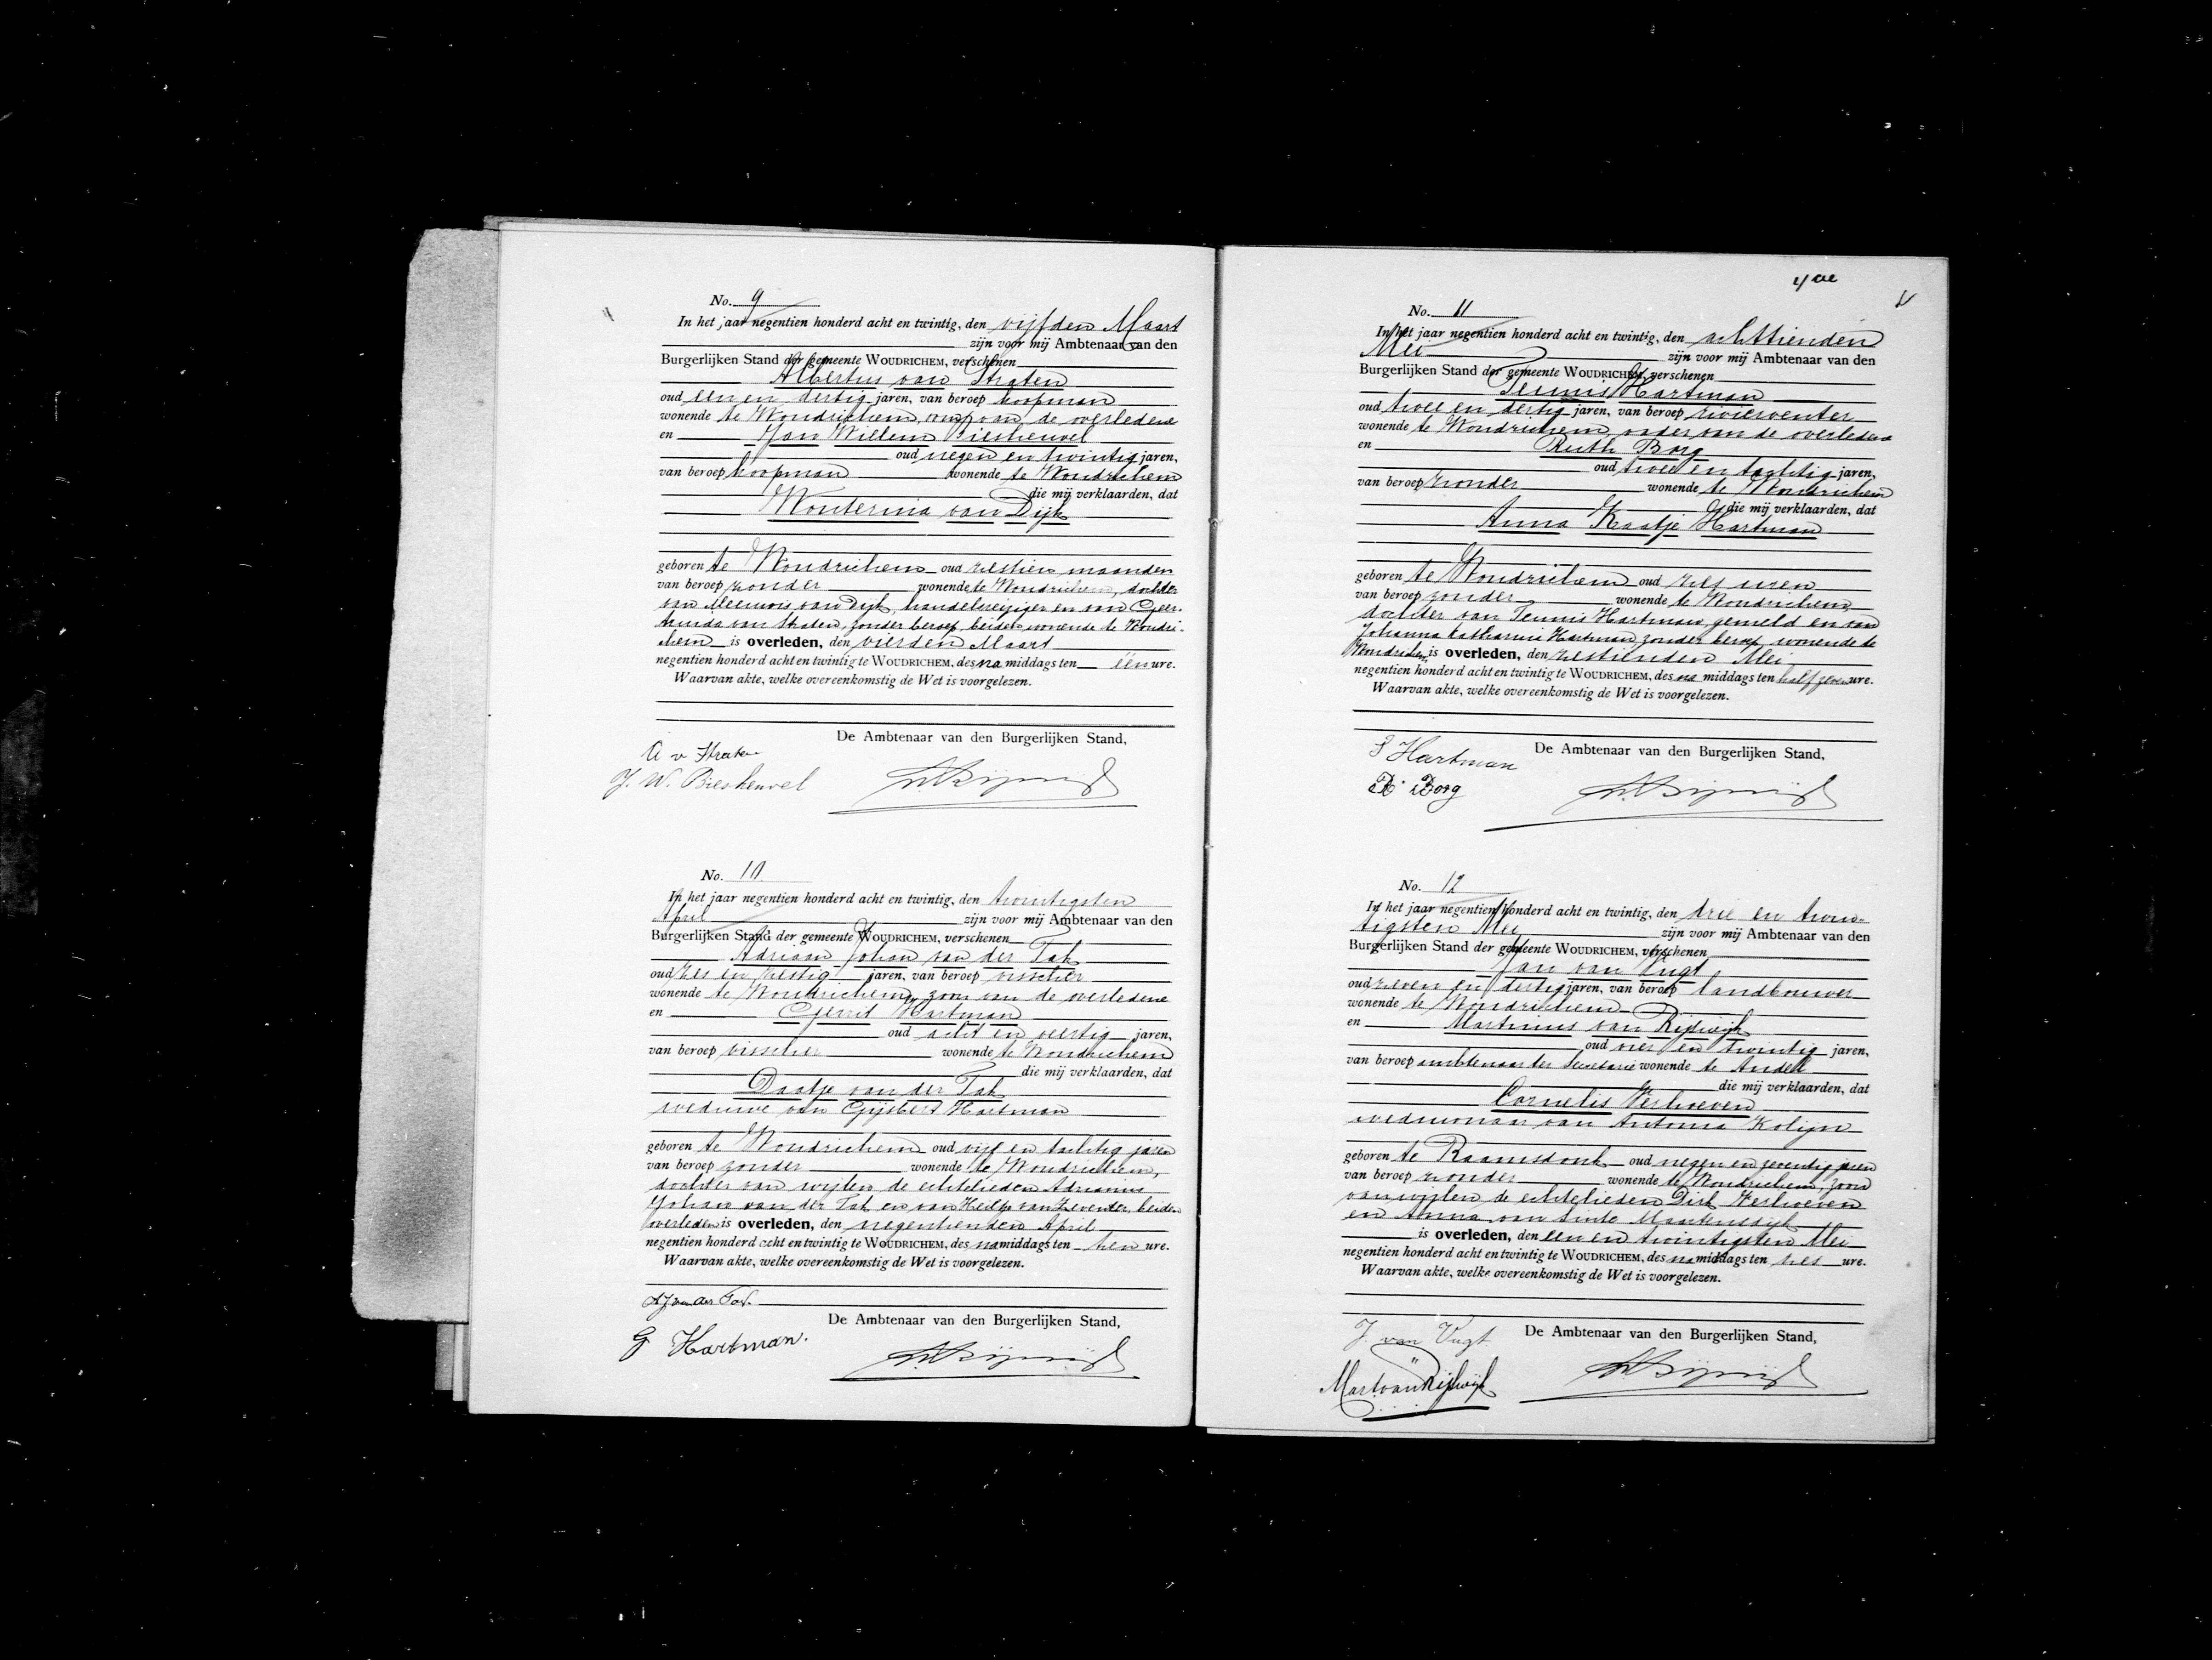 No. 9
In het jaar negentien honderd acht en twintig, den vijfden Maart
zijn voor mij Ambtenaar van den
Burgerlijken Stand der gemeente WOUDRICHEM, verschenen
Albertus van Straten
oud een en dertig jaren, van beroep koopman
wonende te Woudrichem, oom van de overledene
en Jan Willem Biesheuvel
oud negen en twintig jaren,
van beroep koopman wonende te Woudrichem
die mij verklaarden, dat
Wouterina van Dijk
geboren te Woudrichem oud zestien maanden
van beroep zonder wonende te Woudrichem, dochter
van Meeuwis van Dijk, handelsreiziger en van Geer-
truida van Straten, zonder beroep, beiden wonende te Woudri-
chem is overleden, den vierden Maart
negentien honderd acht en twintig te WOUDRICHEM, des na middags ten één ure.
Waarvan akte, welke overeenkomstig de Wet is voorgelezen.
De Ambtenaar van den Burgerlijken Stand,
A v Straten
J. W. Biesheuvel
No. 10
In het jaar negentien honderd acht en twintig, den twintigsten
April zijn voor mij Ambtenaar van den
Burgerlijken Stand der gemeente WOUDRICHEM, verschenen
Adriaan Johan van der Tak
oud zes en zestig jaren, van beroep visscher
wonende te Woudrichem, zoon van de overledene
en Gerrit Hartman
oud acht en veertig jaren,
van beroep visscher wonende te Woudrichem
die mij verklaarden, dat
Daatje van der Tak
weduwe van Gijsbert Hartman
geboren te Woudrichem oud vijf en tachtig jaren
van beroep zonder wonende te Woudrichem,
dochter van wijlen de echtelieden Adrianus
Johan van der Tak en van Heiltje van Zeventer, beiden
overleden is overleden, den negentienden April
negentien honderd acht en twintig te WOUDRICHEM, des na middags ten tien ure.
Waarvan akte, welke overeenkomstig de Wet is voorgelezen.
AJ van der Tak.
De Ambtenaar van den Burgerlijken Stand,
G Hartman.
No. 11
In het jaar negentien honderd acht en twintig, den achttienden
Mei zijn voor mij Ambtenaar van den
Burgerlijken Stand der gemeente WOUDRICHEM, verschenen
Teunis Hartman
oud twee en dertig jaren, van beroep rivierventer
wonende te Woudrichem, vader van de overledene
en Ruth Borg
oud twee en tachtig jaren,
van beroep zonder wonende te Woudrichem
die mij verklaarden, dat
Anna Kaatje Hartman
geboren te Woudrichem oud elf uren
van beroep zonder wonende te Woudrichem
dochter van Teunis Hartman, gemeld en van
Johanna Katharina Hartman zonder beroep, wonende te
Woudrichem, is overleden, den zestienden Mei
negentien honderd acht en twintig te WOUDRICHEM, des na middags ten half zeven ure.
Waarvan akte, welke overeenkomstig de Wet is voorgelezen.
De Ambtenaar van den Burgerlijken Stand,
Hartman
R. Borg
No. 12
In het jaar negentien honderd acht en twintig, den drie en twin-
tigsten Mei zijn voor mij Ambtenaar van den
Burgerlijken Stand der gemeente WOUDRICHEM, verschenen
Jan van Vugt
oud zeven en dertig jaren, van beroep landbouwer
wonende te Woudrichem
en Martinus van Rijswijk
oud vier en twintig jaren,
van beroep ambtenaar ter Secretarie wonende te Andel
die mij verklaarden, dat
Cornelis Verhoeven
weduwnaar van Antonia Kolijn
geboren te Raamsdonk oud negen en zeventig jaren
van beroep zonder wonende te Woudrichem, zoon
van wijlen de echtelieden Dirk Verhoeven
en Anna van Sinte Maartensdijk
is overleden, den een en twintigsten Mei
negentien honderd acht en twintig te WOUDRICHEM, des na middags ten zes ure.
Waarvan akte, welke overeenkomstig de Wet is voorgelezen.
De Ambtenaar van den Burgerlijken Stand,
J. van Vugt
Mart van Rijswijk